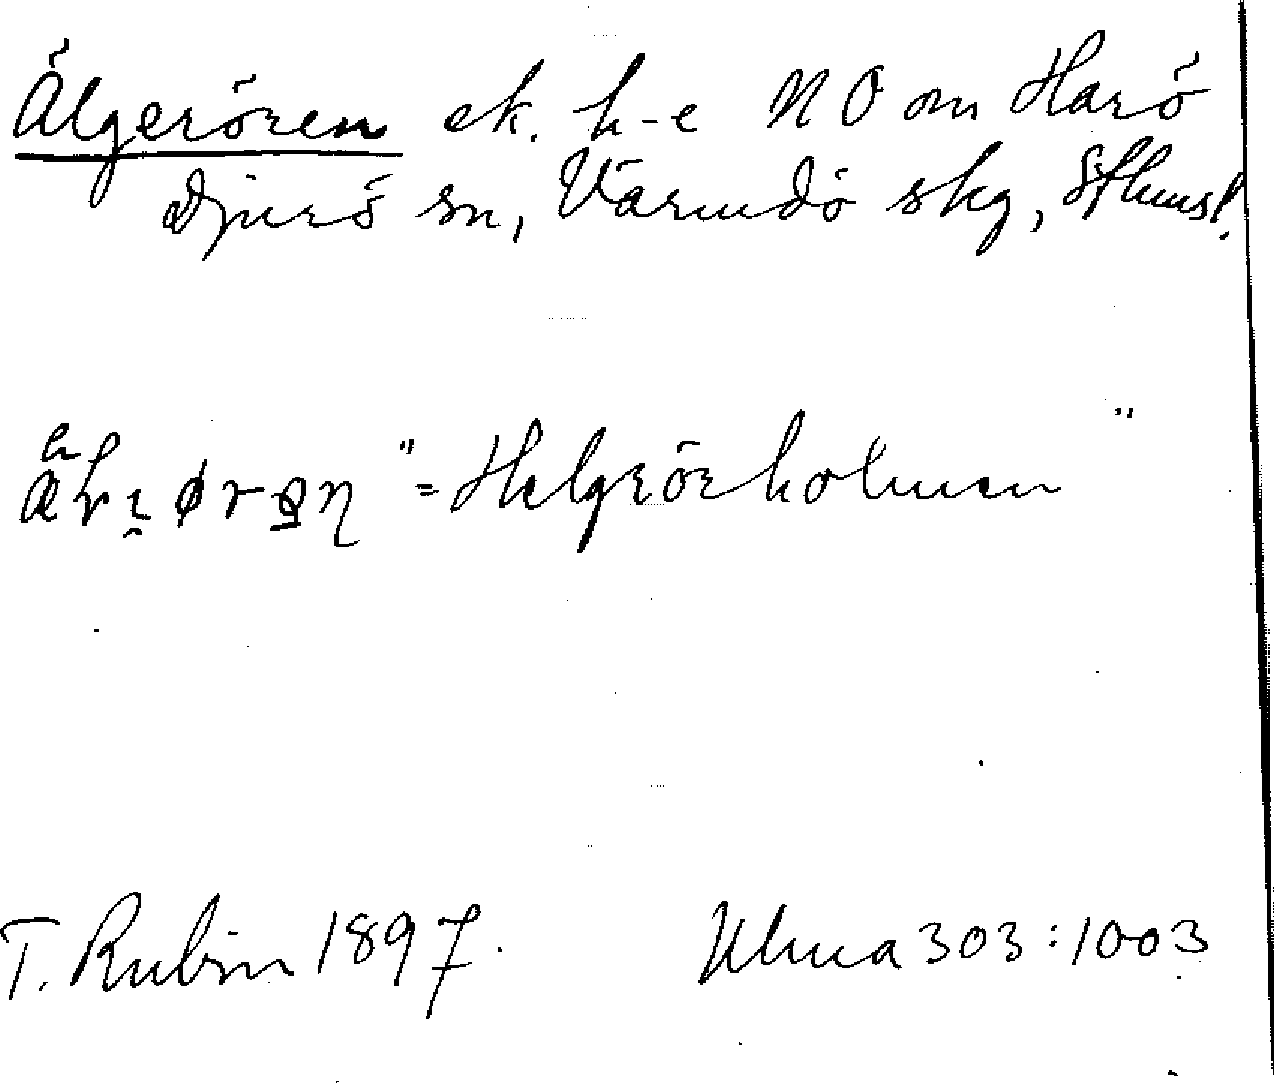 Älgerören ek. h-e NO om Harö
Djurö sn, Värmdö skg, Sthmsl.
"= Helgrörholmen"
T. Rubin 1897. Ulma 303:1003